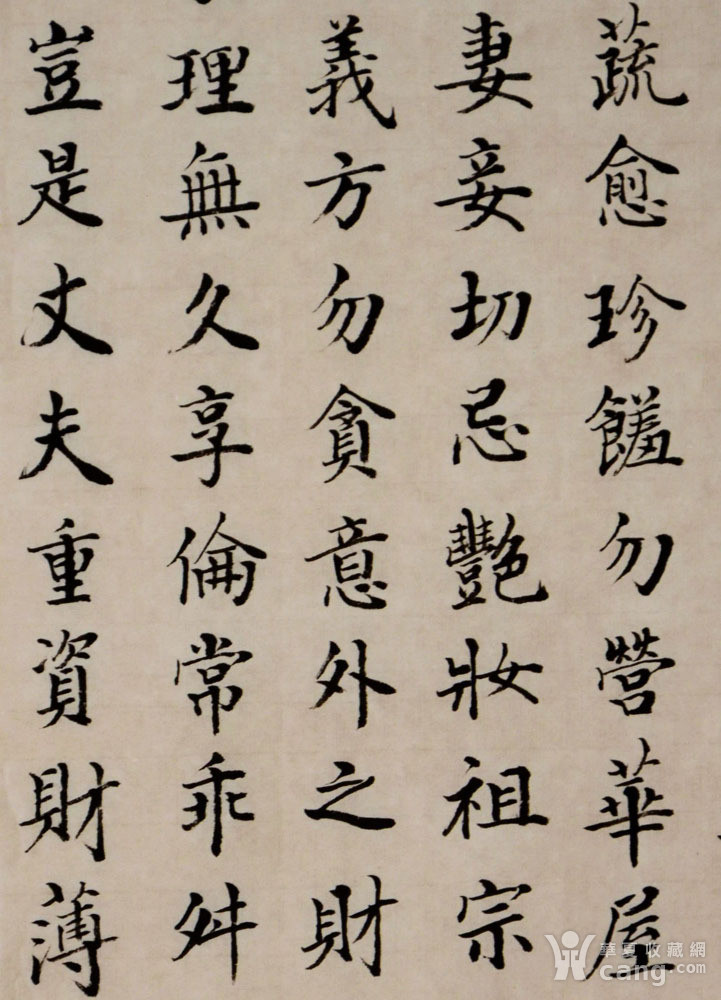 蔬愈珍饈勿營華屋
妻妾切忌艷妝祖宗
義方勿貪意外之財
理無久享倫常乖舛
豈是丈夫重資財薄
華夏收藏網
cang.com